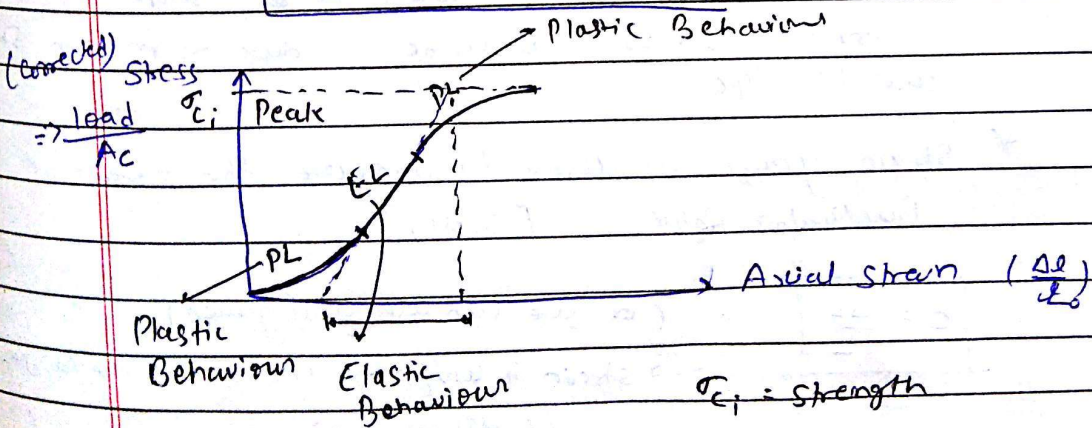 Plastic Behaviour
(corrected) Stress
σci Peak
=> Load / Ac
PL
EL
PL
Axial Strain (Δl/l₀)
Plastic
Behaviour
Elastic
Behaviour
σci = Strength